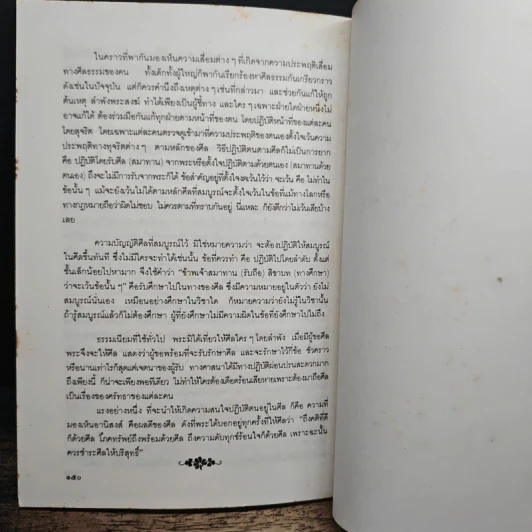 ในคราวที่พากันมองเห็นความเสื่อมต่าง ๆ ที่เกิดจากความประพฤติเสื่อม
ทางศีลธรรมของคน ทั้งเด็กทั้งผู้ใหญ่ก็พากันเรียกร้องหาศีลธรรมกันเกรียวกราว
ดังเช่นในปัจจุบัน แต่ก็ควรคำนึงถึงเหตุต่าง ๆ เช่นที่กล่าวมา และช่วยกันแก้ให้ถูก
ต้นเหตุ ลำพังพระสงฆ์ ทำได้เพียงเป็นผู้ชี้ทาง และใคร ๆ เฉพาะฝ่ายใดฝ่ายหนึ่งไม่
อาจแก้ได้ ต้องร่วมมือกันแก้ทุกฝ่ายตามหน้าที่ของตน โดยปฏิบัติหน้าที่ของแต่ละคน
โดยสุจริต โดยเฉพาะแต่ละคนตรวจดูเข้ามาที่ความประพฤติของตนเองตั้งใจเว้นความ
ประพฤติทางทุจริตต่าง ๆ ตามหลักของศีล วิธีปฏิบัติตนตามศีลก็ไม่เป็นการยาก
คือ ปฏิบัติโดยรับศีล (สมาทาน) จากพระหรือตั้งใจปฏิบัติตามด้วยตนเอง (สมาทานด้วย
ตนเอง) ถึงจะไม่มีการรับจากพระก็ได้ ข้อสำคัญอยู่ที่ตั้งใจงดเว้นไว้ว่า จะเว้น คือ ไม่ทำใน
ข้อนั้น ๆ แม้จะยังเว้นไม่ได้ตามหลักศีลที่สมบูรณ์จะตั้งใจเว้นในข้อที่แม้ทางโลกหรือ
ทางกฎหมายถือว่าผิดไม่ชอบ ไม่ควรตามที่ทราบกันอยู่ นี่แหละ ก็ยังดีกว่าไม่เว้นเสียบ้าง
เลย
ความบัญญัติศีลที่สมบูรณ์ไว้ มิใช่หมายความว่า จะต้องปฏิบัติให้สมบูรณ์
ในศีลขึ้นทันที ซึ่งไม่มีใครจะทำได้เช่นนั้น ข้อที่ควรทำ คือ ปฏิบัติไปโดยลำดับ ตั้งแต่
ชั้นเล็กน้อยไปหามาก จึงใช้คำว่า “ข้าพเจ้าสมาทาน (รับถือ) สิขาบท (ทางศึกษา)
ว่าจะเว้นข้อนั้น ๆ” คือรับศึกษาไปในทางของศีล ซึ่งมีความหมายอยู่ในตัวว่า ยังไม่
สมบูรณ์นั่นเอง เหมือนอย่างศึกษาในวิชาใด ก็หมายความว่ายังไม่รู้ในวิชานั้น
ถ้ารู้สมบูรณ์แล้วก็ไม่ต้องศึกษา ผู้ที่ยังศึกษาไม่มีความผิดในข้อที่ยังศึกษาไปไม่ถึง
ธรรมเนียมที่ใช้ทั่วไป พระมิได้เที่ยวให้ศีลใคร ๆ โดยลำพัง เมื่อมีผู้ขอศีล
พระจึงจะให้ศีล แสดงว่าผู้ขอพร้อมที่จะรับรักษาศีล และจะรักษาไว้กี่ข้อ ชั่วคราว
หรือนานเท่าไรก็สุดแต่เจตนาของผู้รับ ทางศาสนาได้มีทางปฏิบัติผ่อนปรนสะดวกมาก
ถึงเพียงนี้ ก็น่าจะเพียงพอทีเดียว ไม่ทำให้ใครต้องเดือดร้อนเสียหายเพราะต้องมาถือศีล
เป็นเรื่องของศรัทธาของแต่ละคน
แรงอย่างหนึ่ง ที่จะนำให้เกิดความสนใจปฏิบัติตนอยู่ในศีล ก็คือ ความที่
มองเห็นอานิสงส์ คือผลดีของศีล ดังที่พระได้บอกอยู่ทุกครั้งที่ให้ศีลว่า “ถึงคติที่ดี
ก็ด้วยศีล โภคทรัพย์ถึงพร้อมด้วยศีล ถึงความดับทุกข์ร้อนใจก็ด้วยศีล เพราะฉะนั้น
ควรชำระศีลให้บริสุทธิ์”
๑๕๐